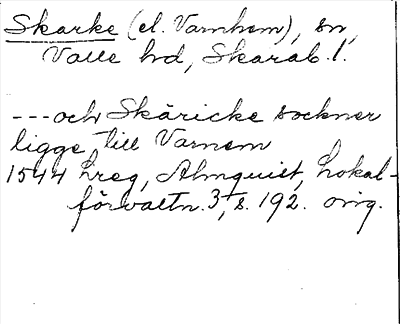 Skarke (el. Varnhem), sn,
Valle hd, Skarab. l.
---och Skäricke sockner
ligge till Varnem
1544 Lreg, Almquist, Lokal-
förvaltn. 3, s. 192. orig.